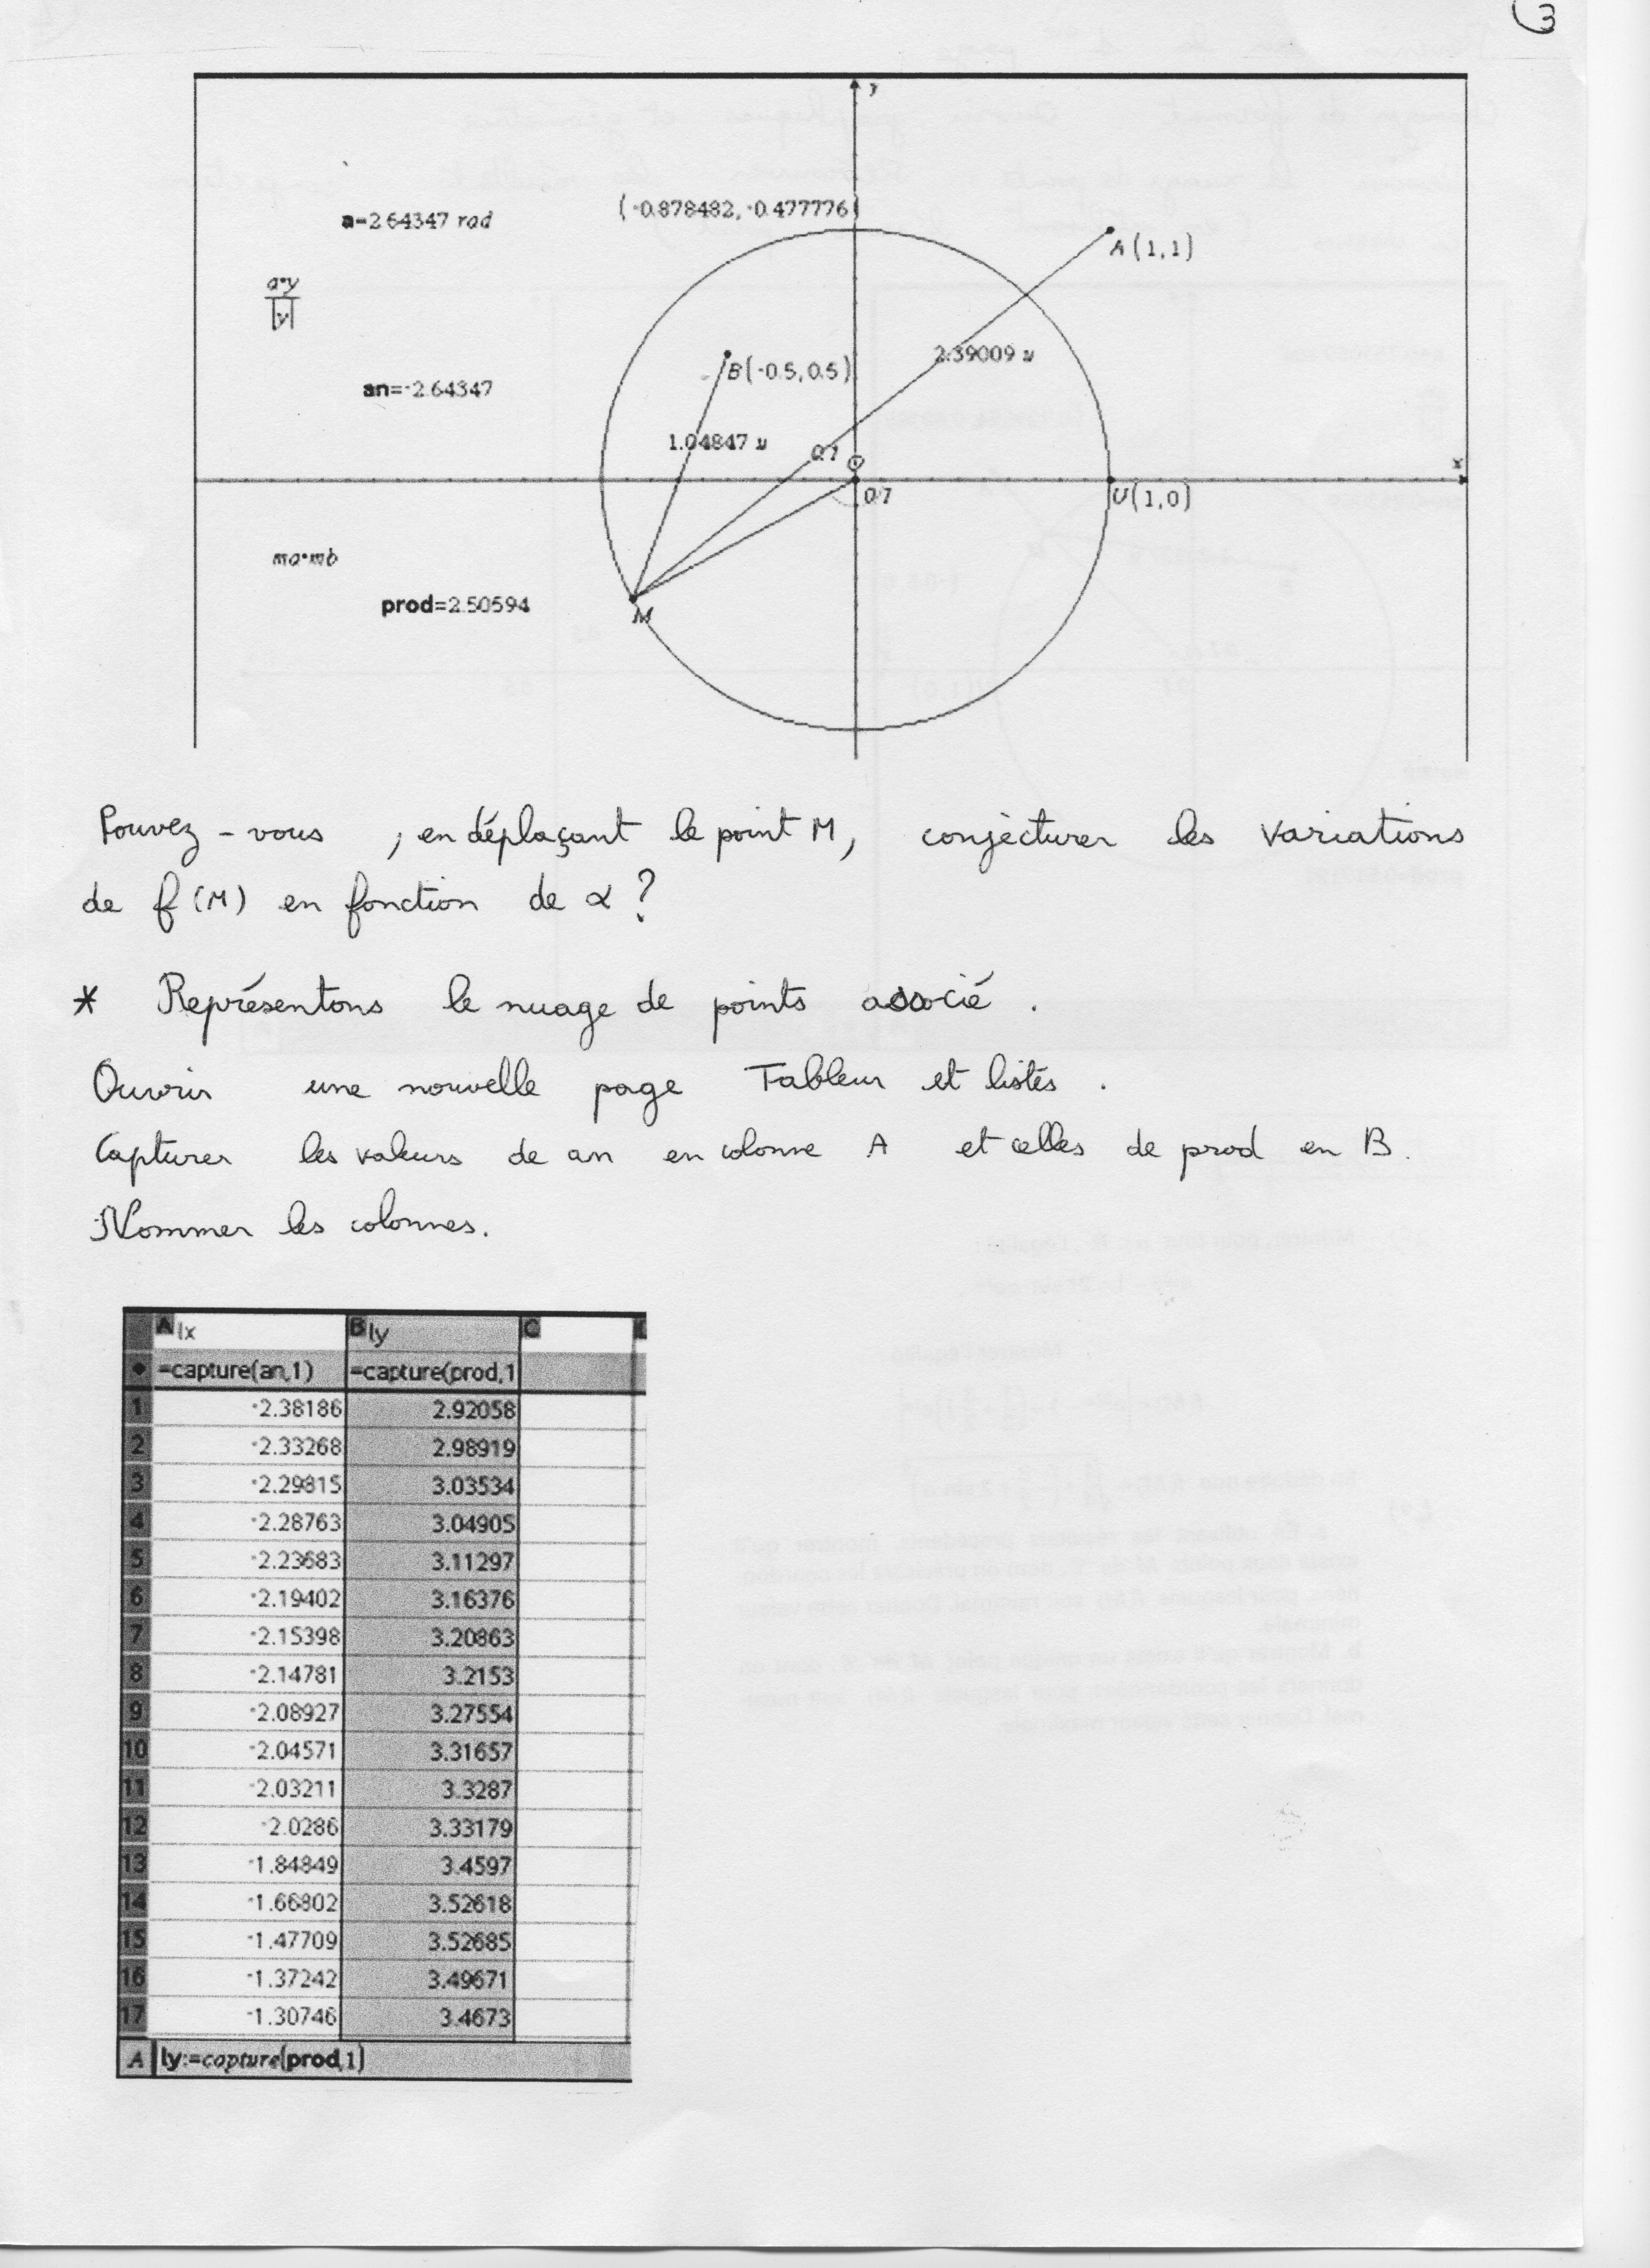 3
y
(-0.878482,-0.477776)
a=2.64347 rad
A(1,1)
a·y
|y|
2.39009 u
B(-0.5,0.5)
an=-2.64347
1.04847 u
0.1
O
x
0.1
U(1,0)
ma·mb
prod=2.50594
M
Pouvez-vous , en déplaçant le point M, conjecturer les variations
de f(M) en fonction de α ?
* Représentons le nuage de points associé .
Ouvrir une nouvelle page Tableur et listes .
Capturer les valeurs de an en colonne A et celles de prod en B.
Nommer les colonnes.
A lx B ly C D
=capture(an,1) =capture(prod,1
1 -2.38186 2.92058
2 -2.33268 2.98919
3 -2.29815 3.03534
4 -2.28763 3.04905
5 -2.23683 3.11297
6 -2.19402 3.16376
7 -2.15398 3.20863
8 -2.14781 3.2153
9 -2.08927 3.27554
10 -2.04571 3.31657
11 -2.03211 3.3287
12 -2.0286 3.33179
13 -1.84849 3.4597
14 -1.66802 3.52618
15 -1.47709 3.52685
16 -1.37242 3.49671
17 -1.30746 3.4673
A ly:=capture(prod,1)